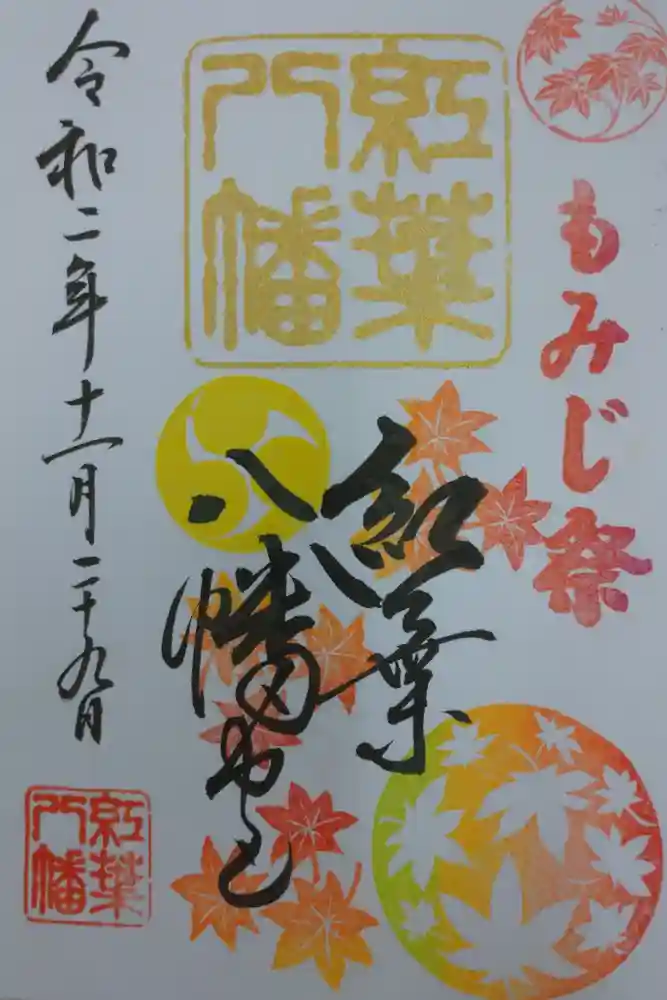 もみじ祭
紅葉
八幡
紅葉
八幡宮
令和二年十一月二十九日
紅葉
八幡